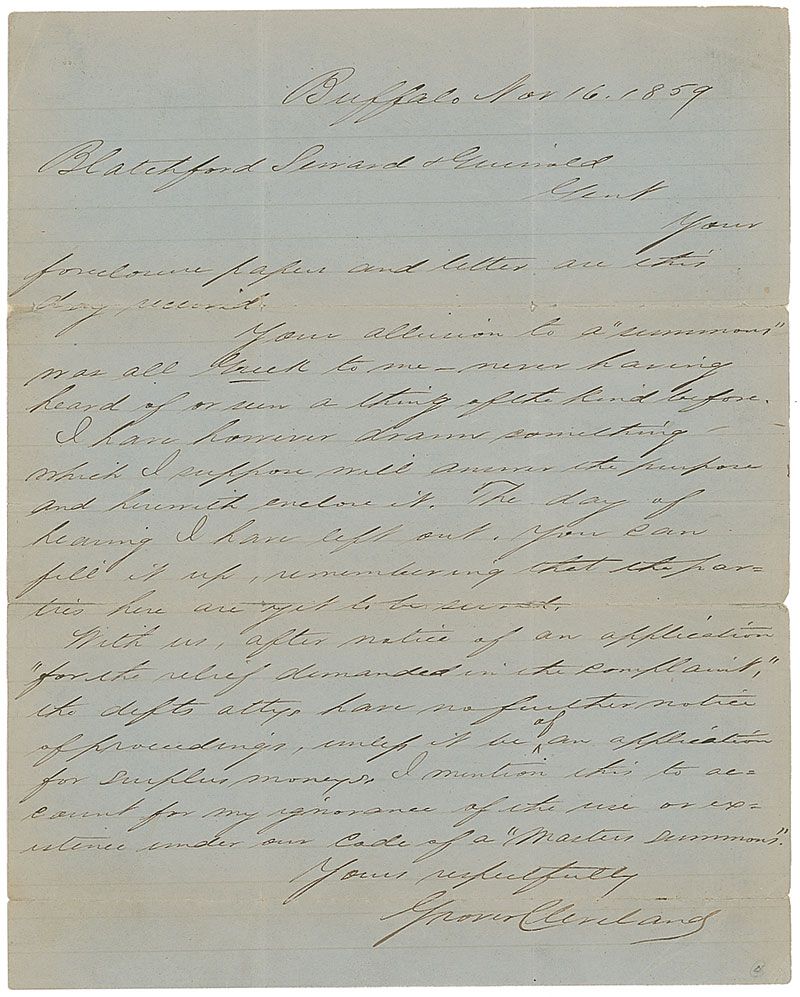 Buffalo Nov 16. 1859
Blatchford Seward & Griswold
Gent
Your
foreclosure papers and letter are this
day received.
Your allusion to a "summons"
was all Greek to me – never having
heard of or seen a thing of the kind before.
I have however drawn something
which I suppose will answer the purpose
and herewith enclose it. The day of
hearing I have left out. You can
fill it up, remembering that the par=
ties here are yet to be served.
With us, after notice of an application
"for the relief demanded in the complaint,"
the defts attys have no further notice
of proceedings, unless it be of an application
for surplus moneys. I mention this to ac=
count for my ignorance of the use or ex=
istence under our Code of a "Masters summons".
Yours respectfully
Grover Cleveland